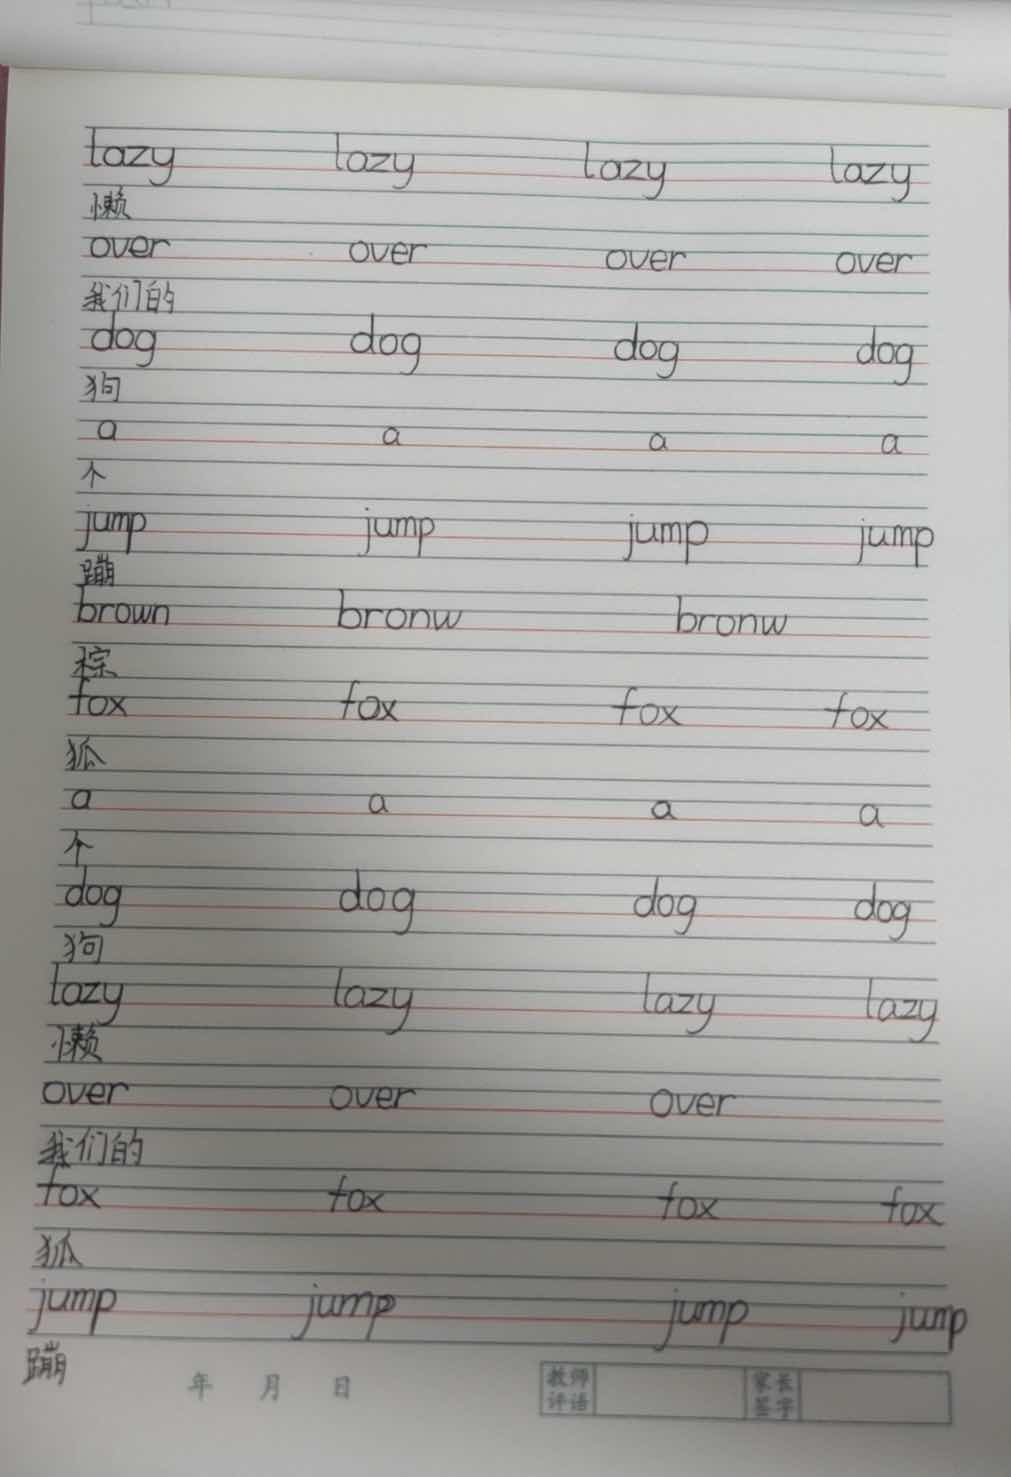 lazy lazy lazy lazy
懒
over over over over
我们的
dog dog dog dog
狗
a a a a
个
jump jump jump jump
蹦
brown bronw bronw
棕
fox fox fox fox
狐
a a a a
个
dog dog dog dog
狗
lazy lazy lazy lazy
懒
over over over
我们的
fox fox fox fox
狐
jump jump jump jump
蹦
年 月 日 教师评语 家长签字